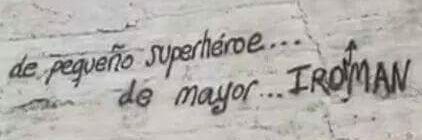 de pequeño superhéroe....
de mayor... IROMAN